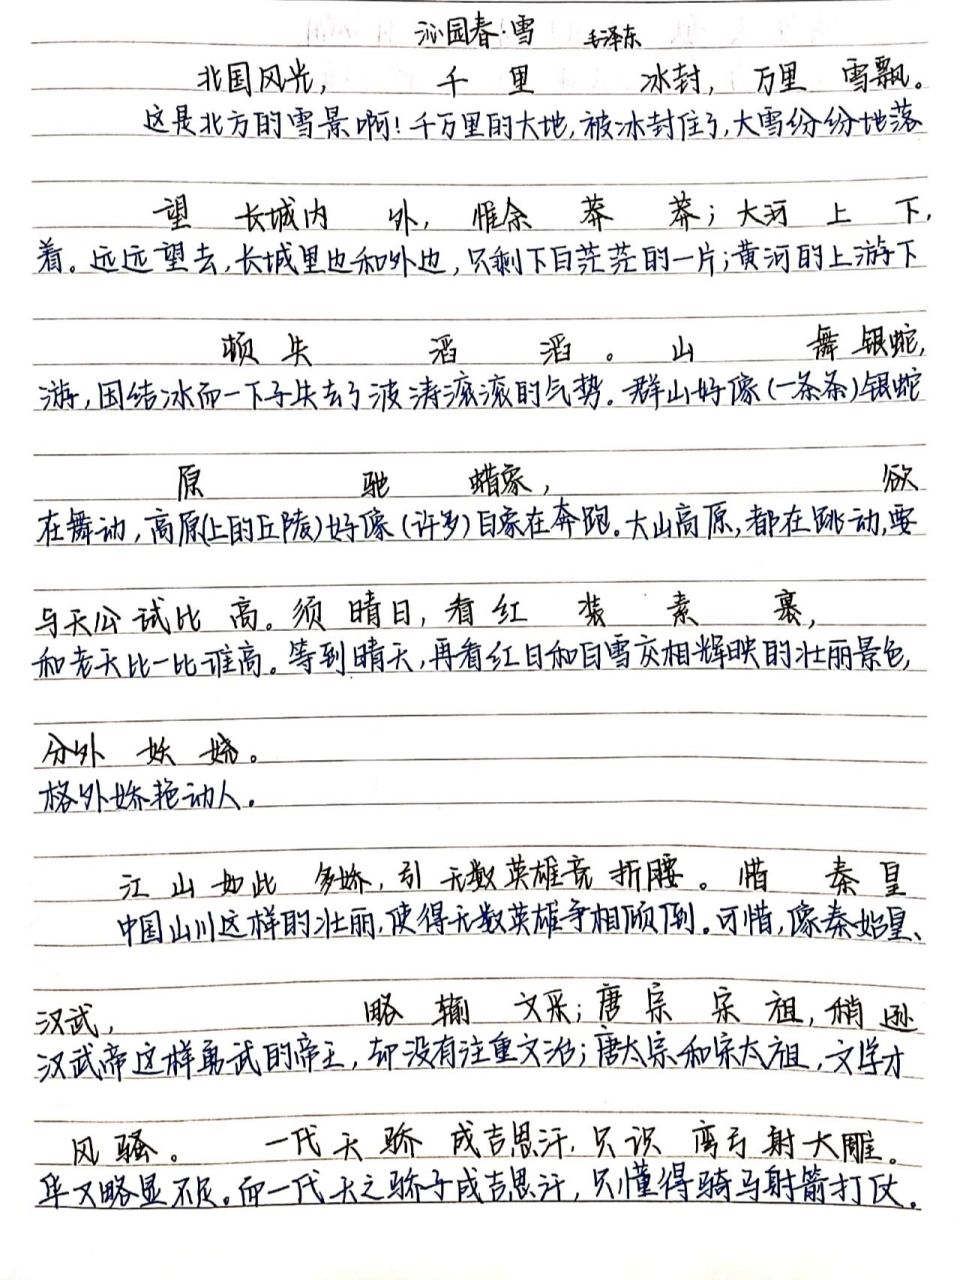 沁园春·雪 毛泽东
北国风光, 千里 冰封, 万里 雪飘。
这是北方的雪景啊!千万里的大地,被冰封住了,大雪纷纷地落
望 长城内 外, 惟余 莽 莽; 大河 上 下,
着。远远望去,长城里也和外也,只剩下白茫茫的一片;黄河的上游下
顿失 滔 滔。山 舞银蛇,
游,因结冰而一下子失去了波涛滚滚的气势。群山好像(一条条)银蛇
原 驰 蜡象, 欲
在舞动,高原(上的丘陵)好像(许多)白象在奔跑。大山高原,都在跳动,要
与天公试比 高。须 晴日, 看红 装 素 裹,
和老天比一比谁高。等到晴天,再看红日和白雪交相辉映的壮丽景色,
分外 妖 娆。
格外娇艳动人。
江山如此 多娇,引 无数英雄竞 折腰。惜 秦皇
中国山川这样的壮丽,使得无数英雄争相倾倒。可惜,像秦始皇、
汉武, 略 输 文采;唐 宗 宋 祖,稍逊
汉武帝这样勇武的帝王,却没有注重文治;唐太宗和宋太祖,文学才
风骚。 一代 天 骄 成吉思汗,只识 弯弓射大雕。
华又略显不足。而一代天之骄子成吉思汗,只懂得骑马射箭打仗。